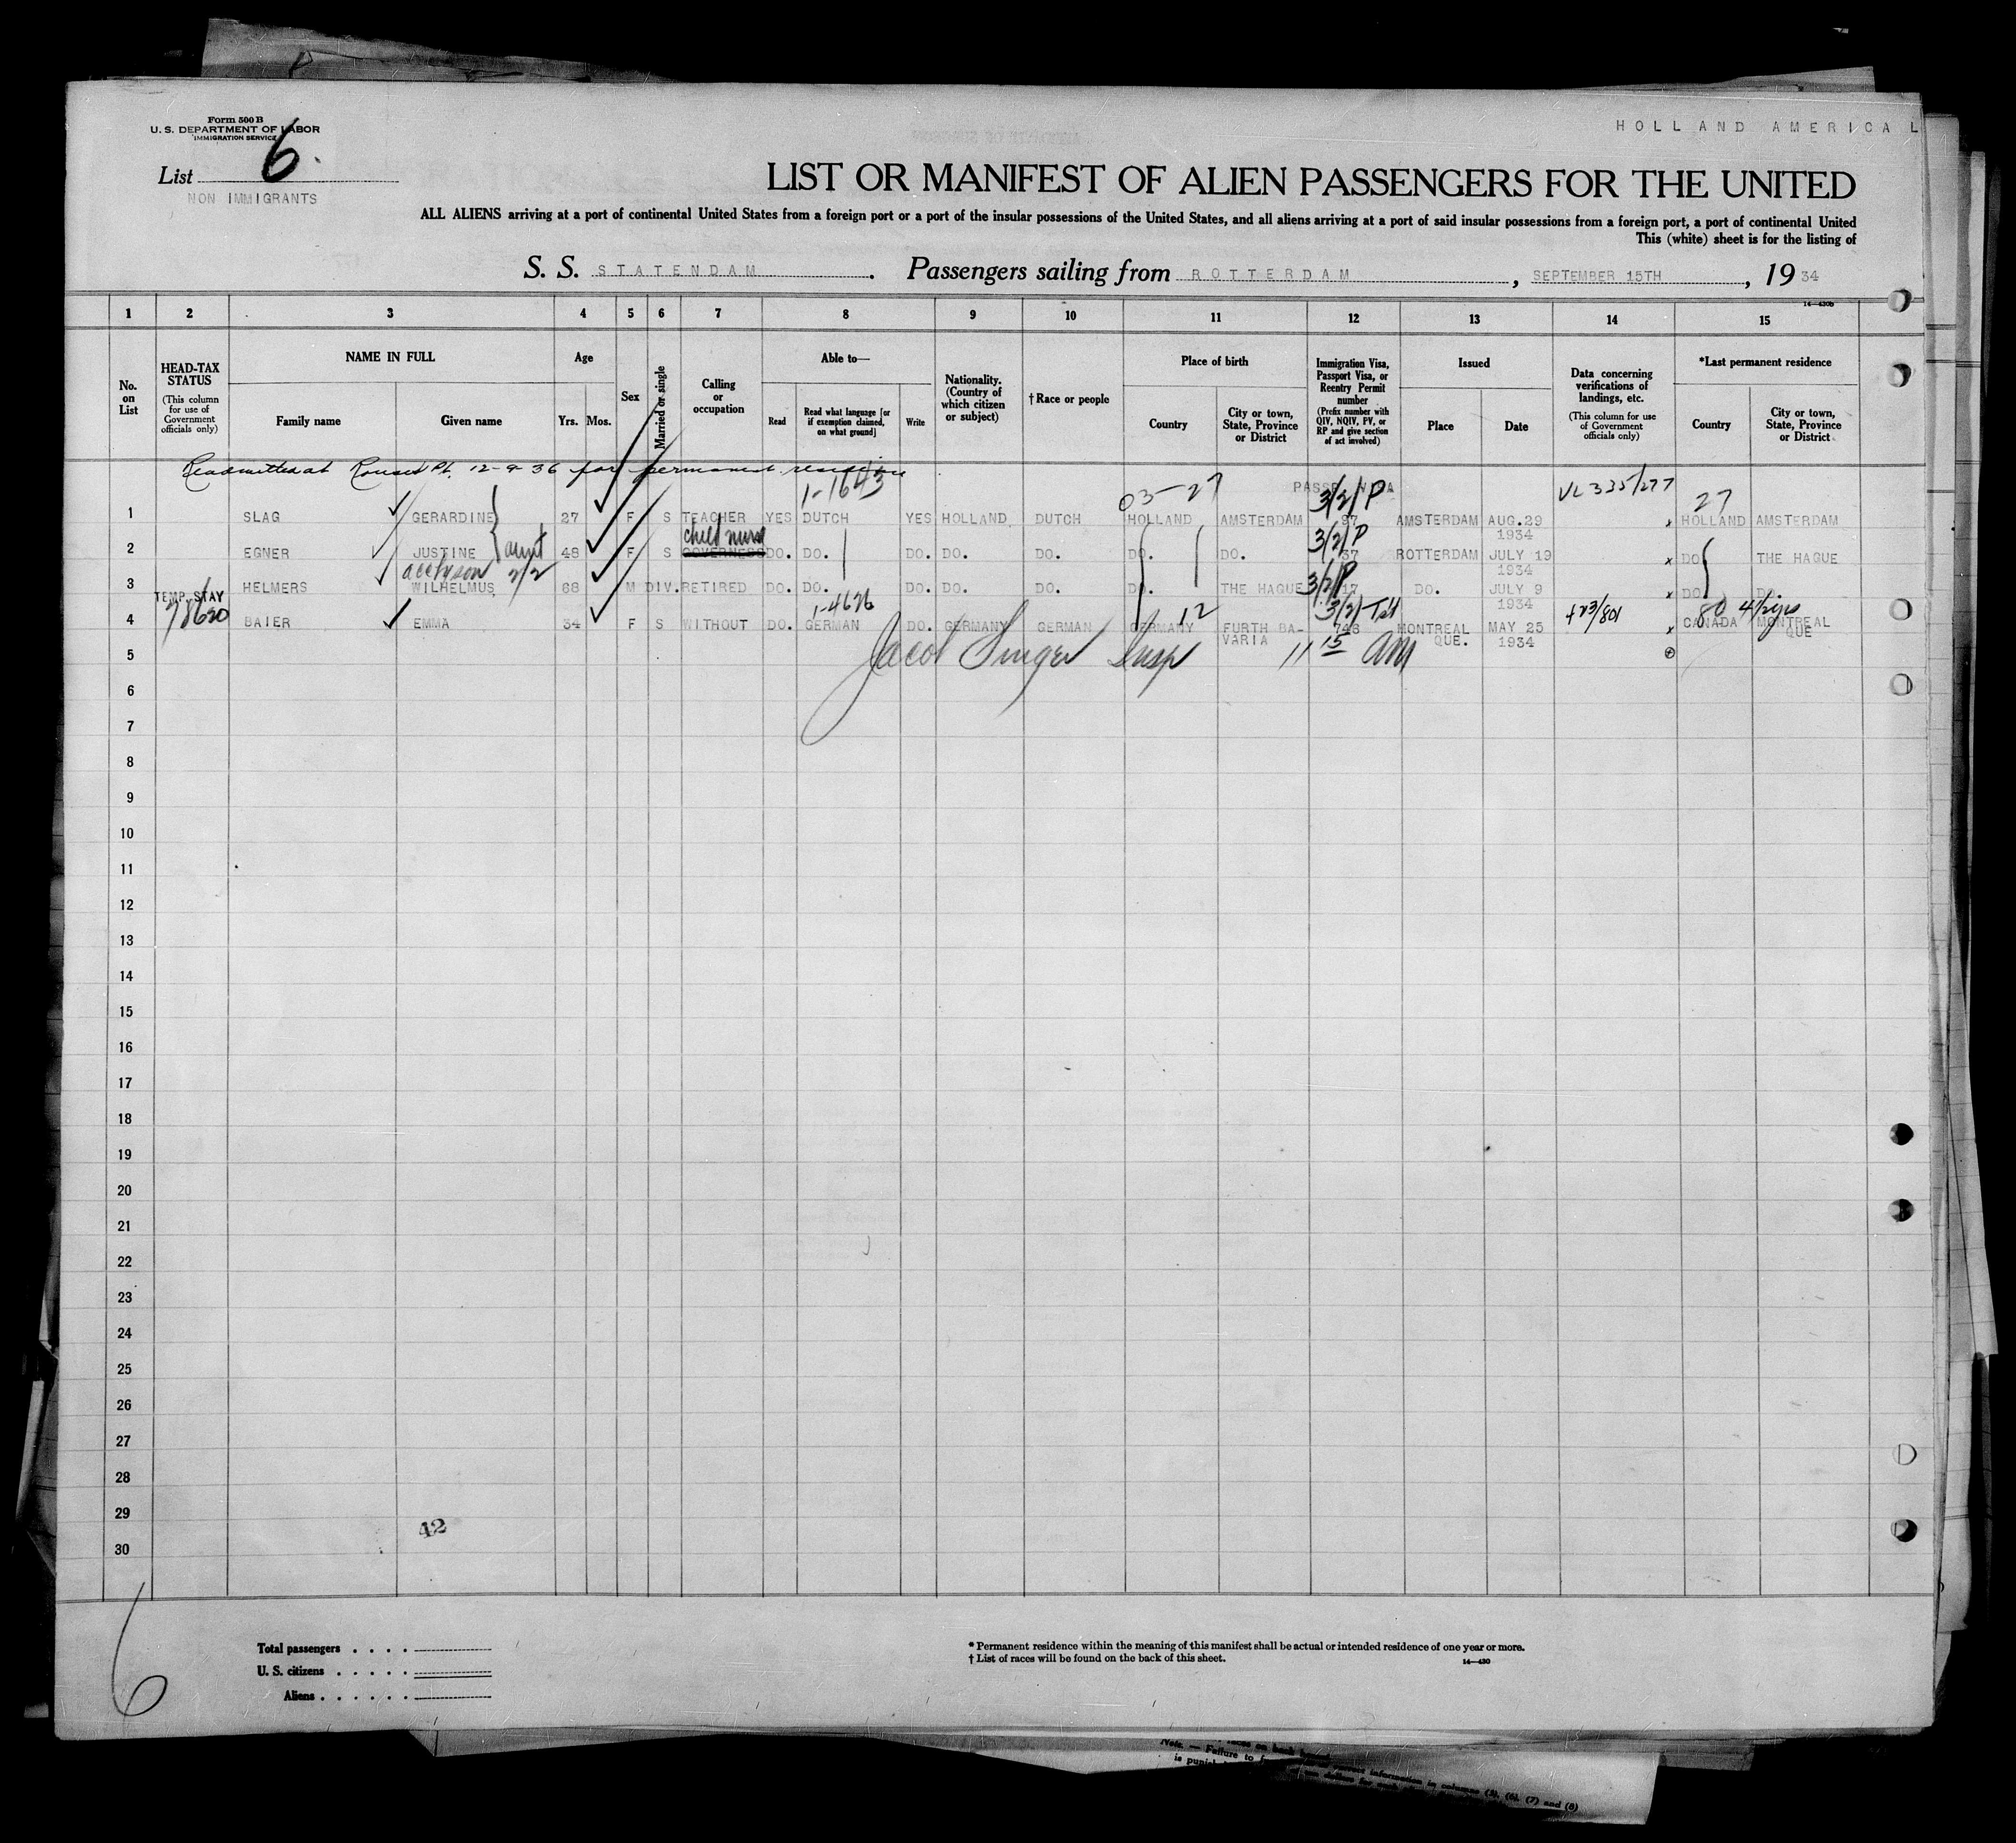 Form 500 B
U. S. DEPARTMENT OF LABOR
IMMIGRATION SERVICE
HOLLAND AMERICA L
List 6.
NON IMMIGRANTS
LIST OR MANIFEST OF ALIEN PASSENGERS FOR THE UNITED
ALL ALIENS arriving at a port of continental United States from a foreign port or a port of the insular possessions of the United States, and all aliens arriving at a port of said insular possessions from a foreign port, a port of continental United
This (white) sheet is for the listing of
S. S. STATENDAM . Passengers sailing from ROTTERDAM , SEPTEMBER 15TH , 19 34
14—430b
1 2 3 4 5 6 7 8 9 10 11 12 13 14 15
No. on List
HEAD-TAX STATUS (This column for use of Government officials only)
NAME IN FULL
Family name Given name
Age
Yrs. Mos.
Sex
Married or single
Calling or occupation
Able to—
Read Read what language [or if exemption claimed, on what ground] Write
Nationality. (Country of which citizen or subject)
† Race or people
Place of birth
Country City or town, State, Province or District
Immigration Visa, Passport Visa, or Reentry Permit number (Prefix number with QIV, NQIV, PV, or RP and give section of act involved)
Issued
Place Date
Data concerning verifications of landings, etc. (This column for use of Government officials only)
*Last permanent residence
Country City or town, State, Province or District
Readmitted at Rouses Pt. 12-9-36 for permanent residence
1-1643 03-27 PASSP. VISA 3/2/P VL 335/277 27
1 SLAG GERARDINE 27 F S TEACHER YES DUTCH YES HOLLAND DUTCH HOLLAND AMSTERDAM 97 AMSTERDAM AUG.29 1934 x HOLLAND AMSTERDAM
child nurse 3/2/P
2 EGNER JUSTINE aunt 48 F S GOVERNESS DO. DO. DO. DO. DO. DO. DO. 37 ROTTERDAM JULY 19 1934 x DO THE HAGUE
2/2 3/2/P
3 HELMERS WILHELMUS 68 M DIV. RETIRED DO. DO. DO. DO. DO. DO. THE HAGUE 17 DO. JULY 9 1934 x DO DO.
TEMP. STAY
78620 1-4626 12 3/2/ +23/801 80
4 BAIER EMMA 34 F S WITHOUT DO. GERMAN DO. GERMANY GERMAN GERMANY FURTH BA-VARIA 746 MONTREAL QUE. MAY 25 1934 x CANADA MONTREAL QUE
5 Jacob Singer Insp 11 15 AM
6
7
8
9
10
11
12
13
14
15
16
17
18
19
20
21
22
23
24
25
26
27
28
29
42
30
6
Total passengers . . . .
U. S. citizens . . . . .
Aliens . . . . . .
* Permanent residence within the meaning of this manifest shall be actual or intended residence of one year or more.
† List of races will be found on the back of this sheet.
14—430